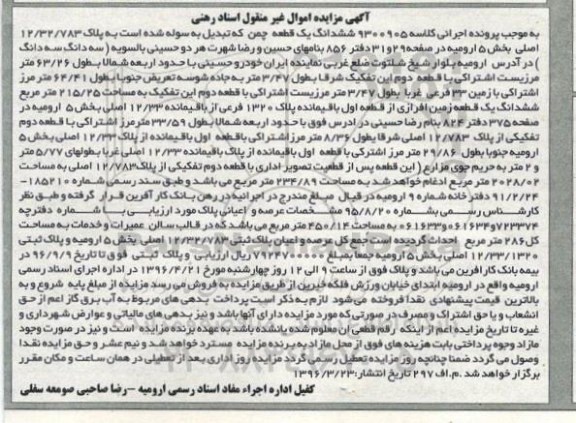 آگهی مزایده اموال غیر منقول اسناد رهنی
به موجب پرونده اجرائی کلاسه ۹۳۰۰۹۰۵ ششدانگ یک قطعه چمن که تبدیل به سوله شده است به پلاک ۱۲/۳۲/۷۸۳
اصلی بخش ۵ ارومیه در صفحه ۲۹و۳۱ دفتر ۸۵۶ بنامهای حسین و رضا شهرت هر دو حسینی بالسویه (سه دانگ سه دانگ
) در آدرس ارومیه بلوار شیخ شلتوت ضلع غربی نماینده ایران خودرو حسینی با حدود اربعه شمالا بطول ۶۳/۲۶ متر
مرزیست اشتراکی با قطعه دوم این تفکیک شرقا بطول ۳/۴۷ متر به جاده شوسه تعریض جنوبا بطول ۶۴/۴۱ متر مرز
اشتراکی با زمین ۳۳ فرعی غربا بطول ۳/۴۰ متر مرزیست اشتراکی با قطعه دوم این تفکیک به مساحت ۲۱۵/۲۵ متر مربع
ششدانگ یک قطعه زمین افرازی از قطعه اول باقیمانده پلاک ۱۳۲۰ فرعی از باقیمانده ۱۲/۳۳ اصلی بخش ۵ ارومیه در
صفحه ۳۷۵ دفتر ۸۲۴ بنام رضا حسینی در ادرس فوق با حدود اربعه شمالا بطول ۳۳/۵۹ متر مرز اشتراکی با قطعه دوم
تفکیکی از پلاک ۱۲/۷۸۳ اصلی شرقا بطول ۸/۳۶ متر مرز اشتراکی باقطعه اول باقیمانده از پلاک ۱۲/۳۳ اصلی بخش ۵
ارومیه جنوبا بطول ۲۹/۸۶ متر مرز اشتراکی با قطعه اول باقیمانده از پلاک باقیمانده ۱۲/۳۳ اصلی غربا بطولهای ۵/۷۷ متر
و ۲ متر به حریم جوی مزارع (این قطعه پس از قطعیت تصویر اداری با قطعه دوم تفکیکی از پلاک ۱۲/۷۸۳ اصلی به مساحت
۲۰۲۸/۰۲ متر مربع ادغام خواهد شد به مساحت ۲۳۴/۸۹ متر مربع می باشد و طبق سند رسمی شماره ۱۸۵۲۱۰-
۹۱/۲/۲۴ دفتر خانه شماره ۹ ارومیه در قبال مبلغ مندرج در اجرائیه در رهن بانک کار آفرین قرار گرفته و طبق نظر
کارشناس رسمی بشماره ۲۰-۹۵/۸/۲ مشخصات عرصه و اعیانی پلاک مورد ارزیابی با شماره دفترچه
۷۲۳۳۷۴و۰۶۱۶۳۴و۰۶۱۶۳۳ به مساحت ۴۵۰/۱۴ متر مربع می باشد که در قالب سالن عمیرات و خدمات به مساحت
کل ۲۸۶ متر مربع احداث گردیده است جمع کل عرصه و اعیان پلاک ثبتی ۱۲/۳۲/۷۸۳ اصلی بخش ۵ ارومیه و پلاک ثبتی
۱۲/۳۳/۱۳۲۰ اصلی بخش ۵ ارومیه جمعا بمبلغ ۷۹۲۴۷۰۰۰۰۰ ریال ارزیابی و پلاک ثبتی فوق تا تاریخ ۹۶/۹/۹ در
بیمه بانک کار آفرین می باشد و پلاک فوق از ساعت ۹ الی ۱۲ روز چهارشنبه مورخ ۱۳۹۶/۴/۲۱ در اداره اجرای اسناد رسمی
ارومیه واقع در ارومیه ابتدای خیابان ورزش فلکه خیرین از طریق مزایده به فروش می رسد مزایده از مبلغ پایه شروع و به
بالاترین قیمت پیشنهادی نقدا فروخته می شود لازم به ذکر است پرداخت بدهی های مربوط به آب برق گاز اعم از حق
انشعاب و یا حق اشتراک و مصرف در صورتی که مورد مزایده دارای آنها باشد و نیز بدهی های مالیاتی و عوارض شهرداری و
غیره تا تاریخ مزایده اعم از اینکه رقم قطعی آن معلوم شده یا نشده باشد به عهده برنده مزایده است و نیز در صورت وجود
مازاد وجوه پرداختی بابت هزینه های فوق از محل مازاد به برنده مزایده مسترد خواهد شد و نیم عشر و حق مزایده نقدا
وصول می گردد ضمنا چنانچه روز مزایده تعطیل رسمی گردد مزایده روز اداری بعد از تعطیلی در همان ساعت و مکان مقرر
برگزار خواهد شد .م.الف ۲۹۷ تاریخ انتشار:۱۳۹۶/۳/۲۳
کفیل اداره اجراء مفاد اسناد رسمی ارومیه –رضا صاحبی صومعه سفلی